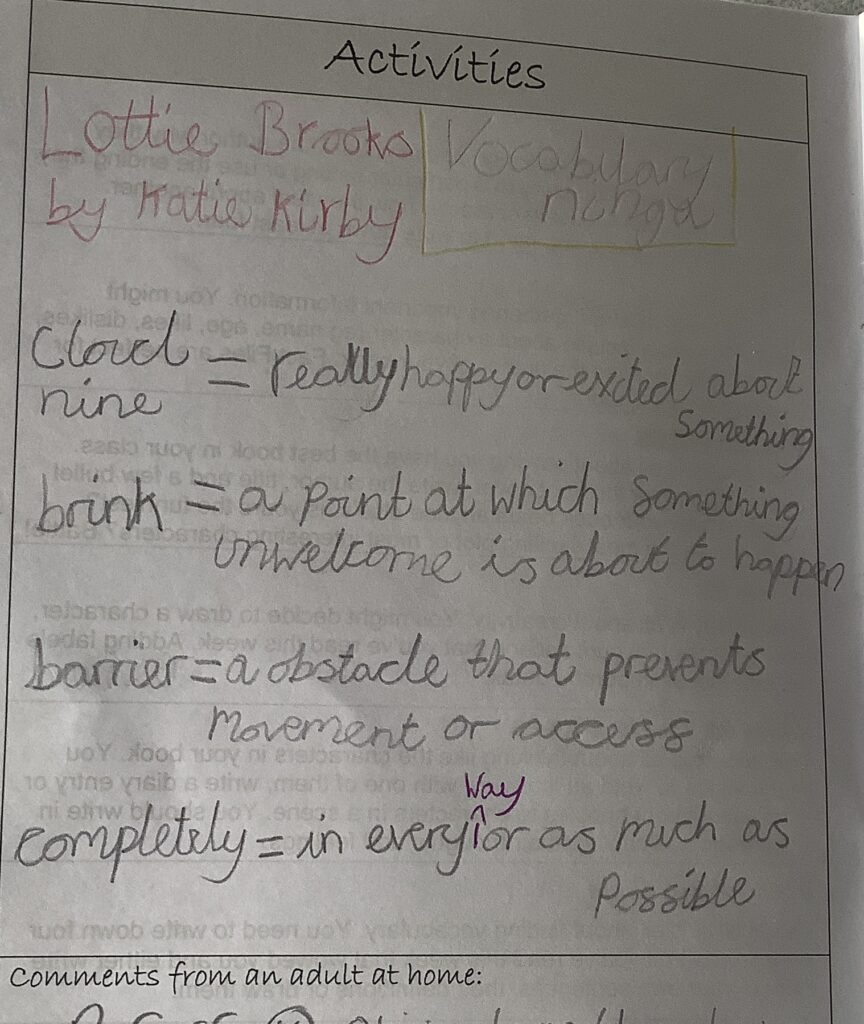 Activities
Lottie Brooks
by Katie Kirby
Vocabulary
ninga
Cloud
nine
= really happy or exited about
Something
brink = a point at which Something
unwelcome is about to happen
barrier = a obstacle that prevents
movement or access
Way
completely = in every ^ or as much as
Possible
Comments from an adult at home: